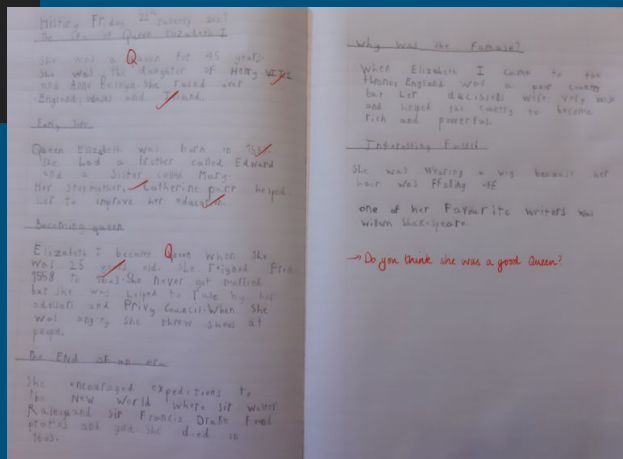 History Friday 22nd
The Era of Queen Elizabeth I
She was a Queen for 45 years.
She was the daughter of Henry VIII
and Anne She ruled over
England, Wales and Ireland.
Early life
Queen Elizabeth was born in
She had a brother called Edward
and a Sister called Mary.
Her stepmother Catherine parr helped
her to improve her education.
Becoming queen
Elizabeth I became Queen when she
was 25 years old. She reigned From
1558 to 1603. She never got married
but she was helped to rule by her
and Privy Council. When She
was angry she threw shoes at
people.
The End of an era
She encouraged expeditions to
the New World where sir walter
Raleigh and Sir Francis Drake Found
and she died in
1603.
Why was she Famous?
When Elizabeth I came to the
throne, England was a poor country
but her were very wise
and helped the country to become
rich and powerful.
Interesting
She was wearing a wig because her
hair was Ffaling off
one of her Favourite writers was
William Shakespeare
→ Do you think she was a good Queen?